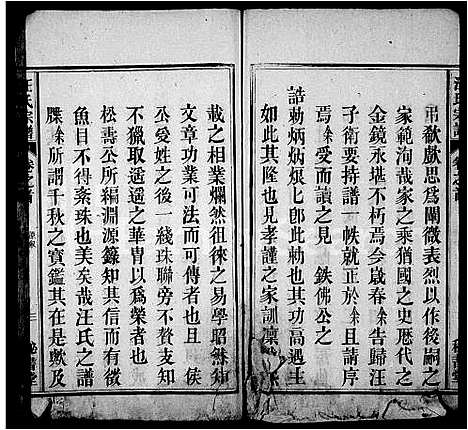 弔欷歔思為闡微表烈以作後嗣之
家範洵哉家之乘猶國之史歷代之
金鏡永堪不朽焉今歲春余告歸汪
子衛要持譜一帙就正於余且請序
焉余受而讀之見 鉄佛公之
誥勅炳炳煥七郎此勅功高遇主
如此其隆也況孝謹之家訓凜
載之相業爛然徂徠之易學昭穌知
文章功業可法而可傳者也且 侯
公愛姓之後一綫珠聯旁不贅支知
不獵取遥遥之華冑以為榮者也
松壽公所編淵源錄知其信而有徵
魚目不得紊珠也美矣哉汪氏之譜
牒余所謂千秋之寶鑑其在是歟及
汪氏宗譜
卷之首
三